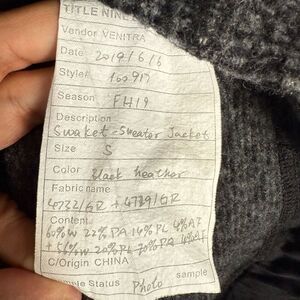 TITLE NINE
Vendor VENITRA
Date 2019/6/6
Style# 160917
Season FH19
Description
Swaket-Sweater Jacket
Size S
Color Black heather
Fabric name
40732/GR + 4739/GR
Content
60%W 22%PA 14%PL 4%AF
+ 56%W 20%PL 20%PA 4%AF
C/Origin CHINA
mple Status Photo sample